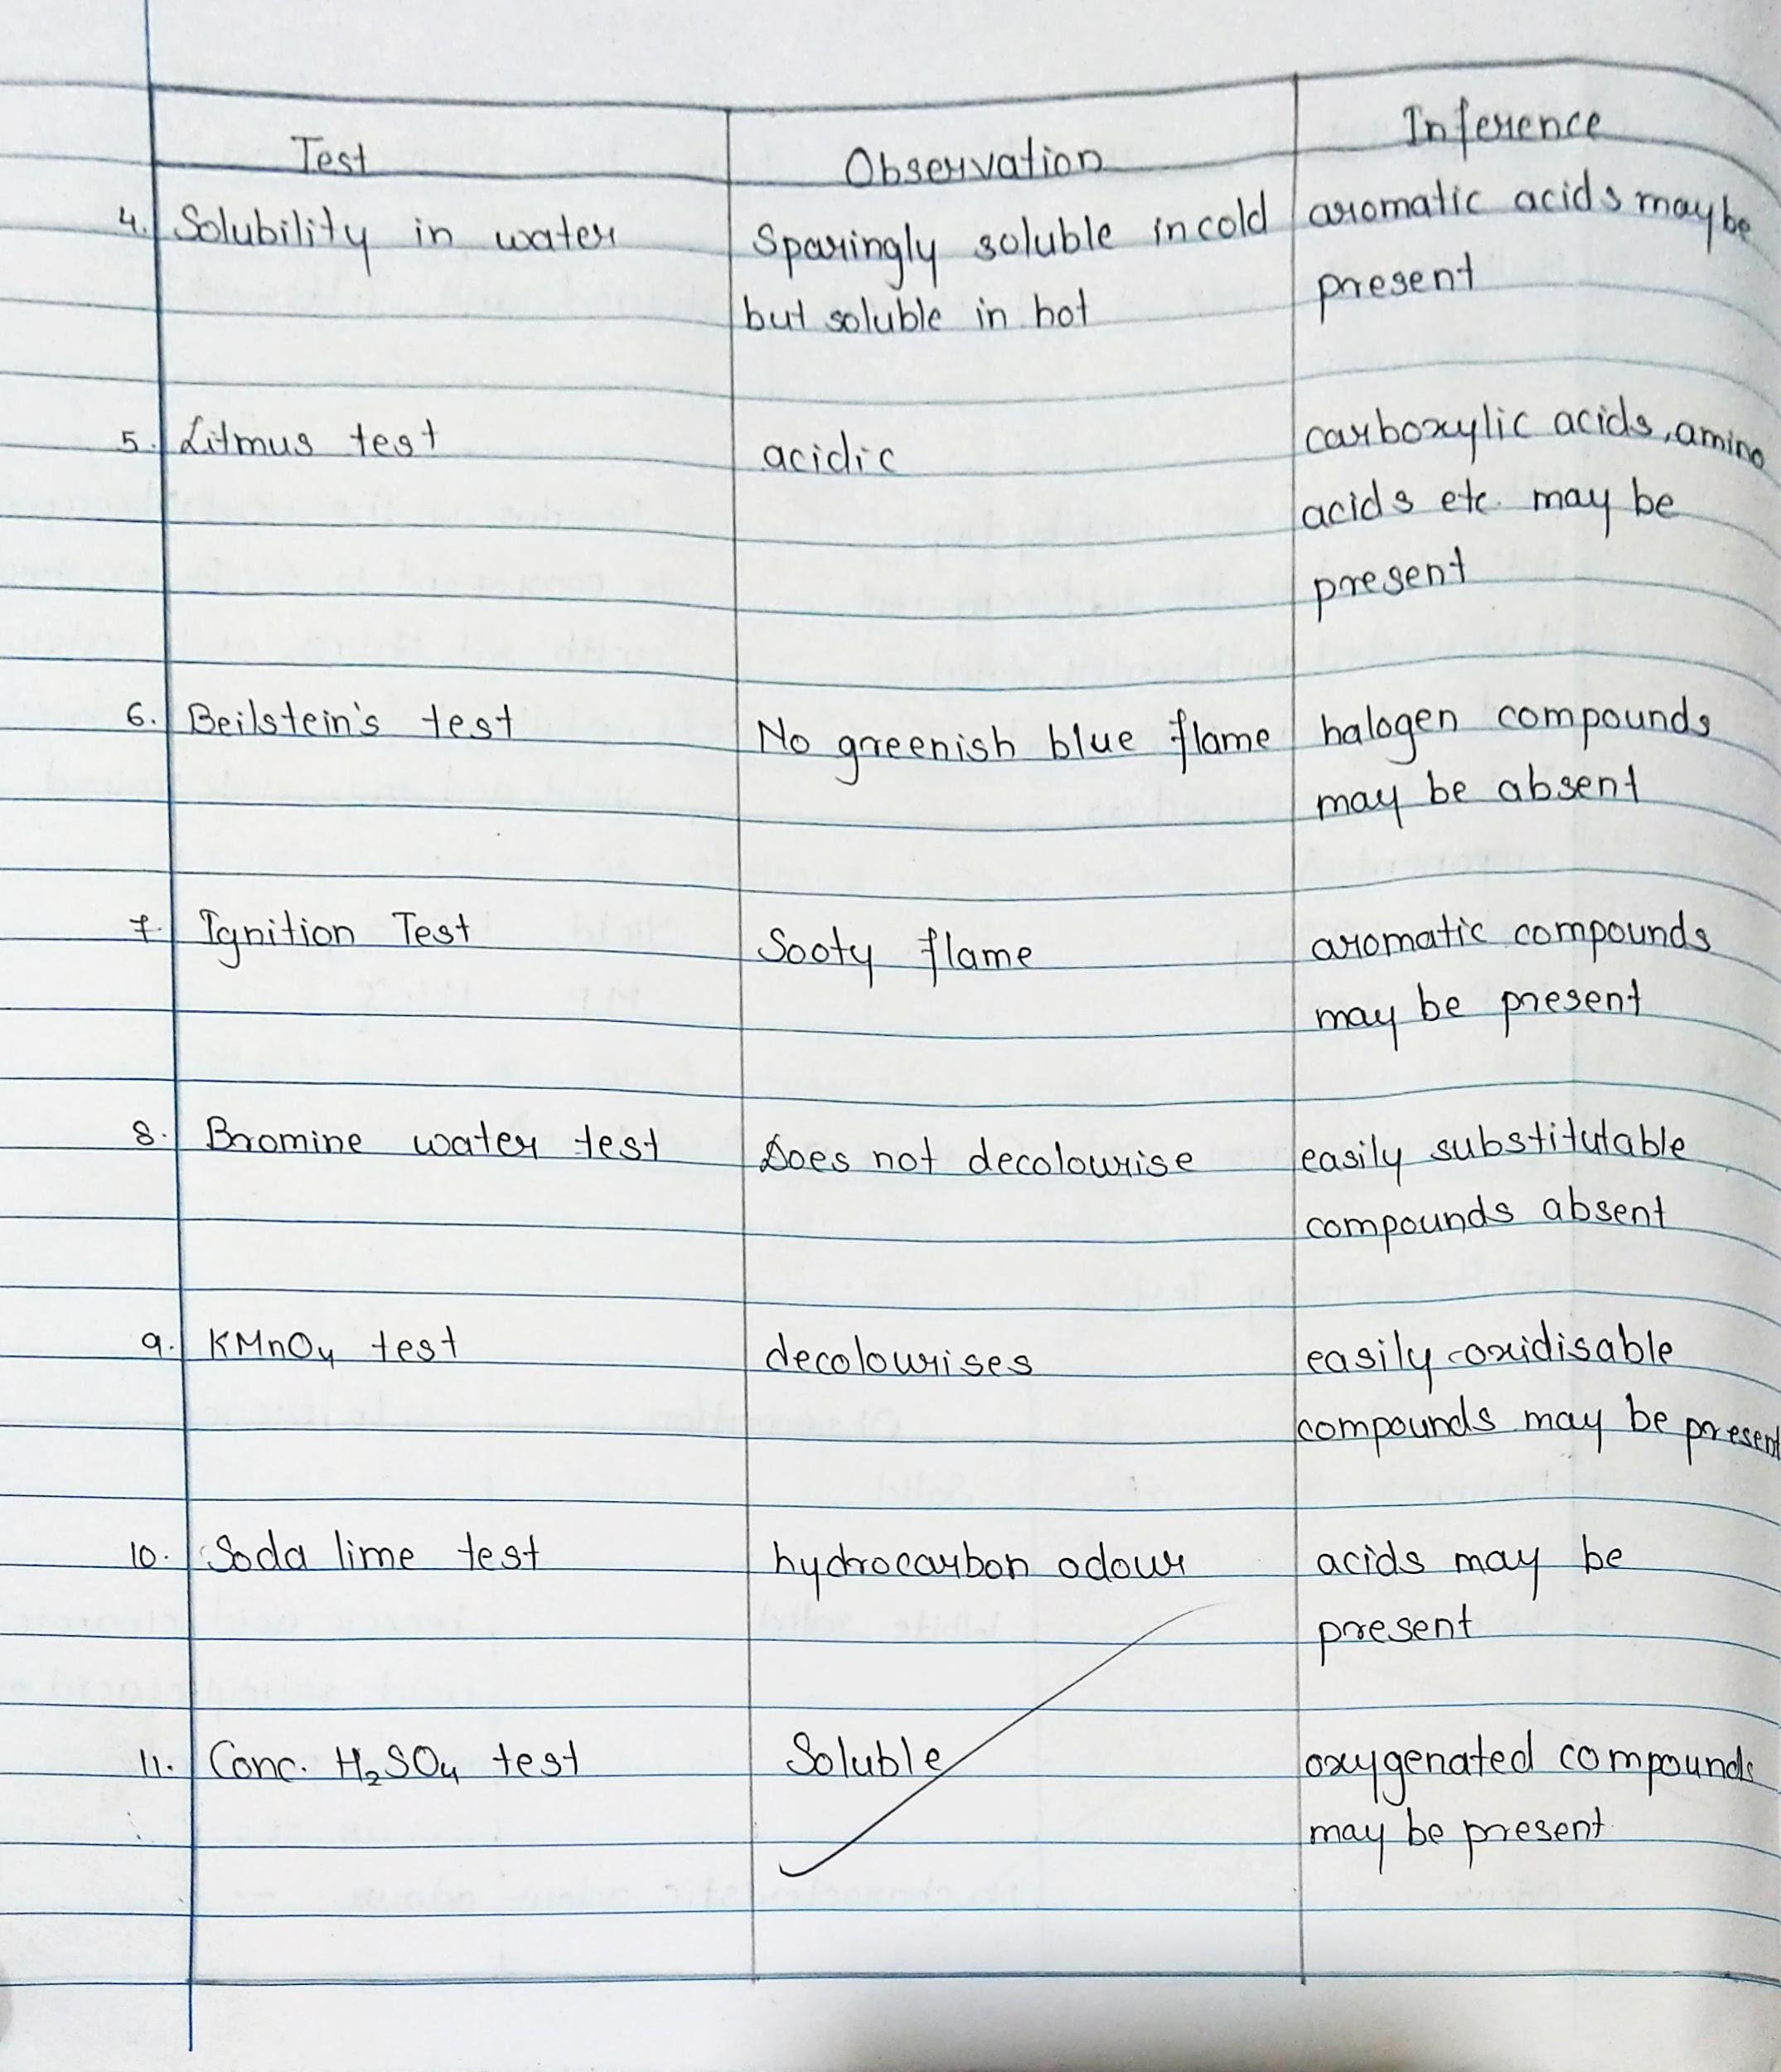 Test Observation Inference
4. Solubility in water Sparingly soluble in cold aromatic acids may be
but soluble in hot present
5. Litmus test acidic carboxylic acids, amino
acids etc. may be
present
6. Beilstein's test No greenish blue flame halogen compounds
may be absent
7. Ignition Test Sooty flame aromatic compounds
may be present
8. Bromine water test Does not decolourise easily substitutable
compounds absent
9. KMnO4 test decolourises easily oxidisable
compounds may be present
10. Soda lime test hydrocarbon odour acids may be
present
11. Conc. H2SO4 test Soluble oxygenated compounds
may be present